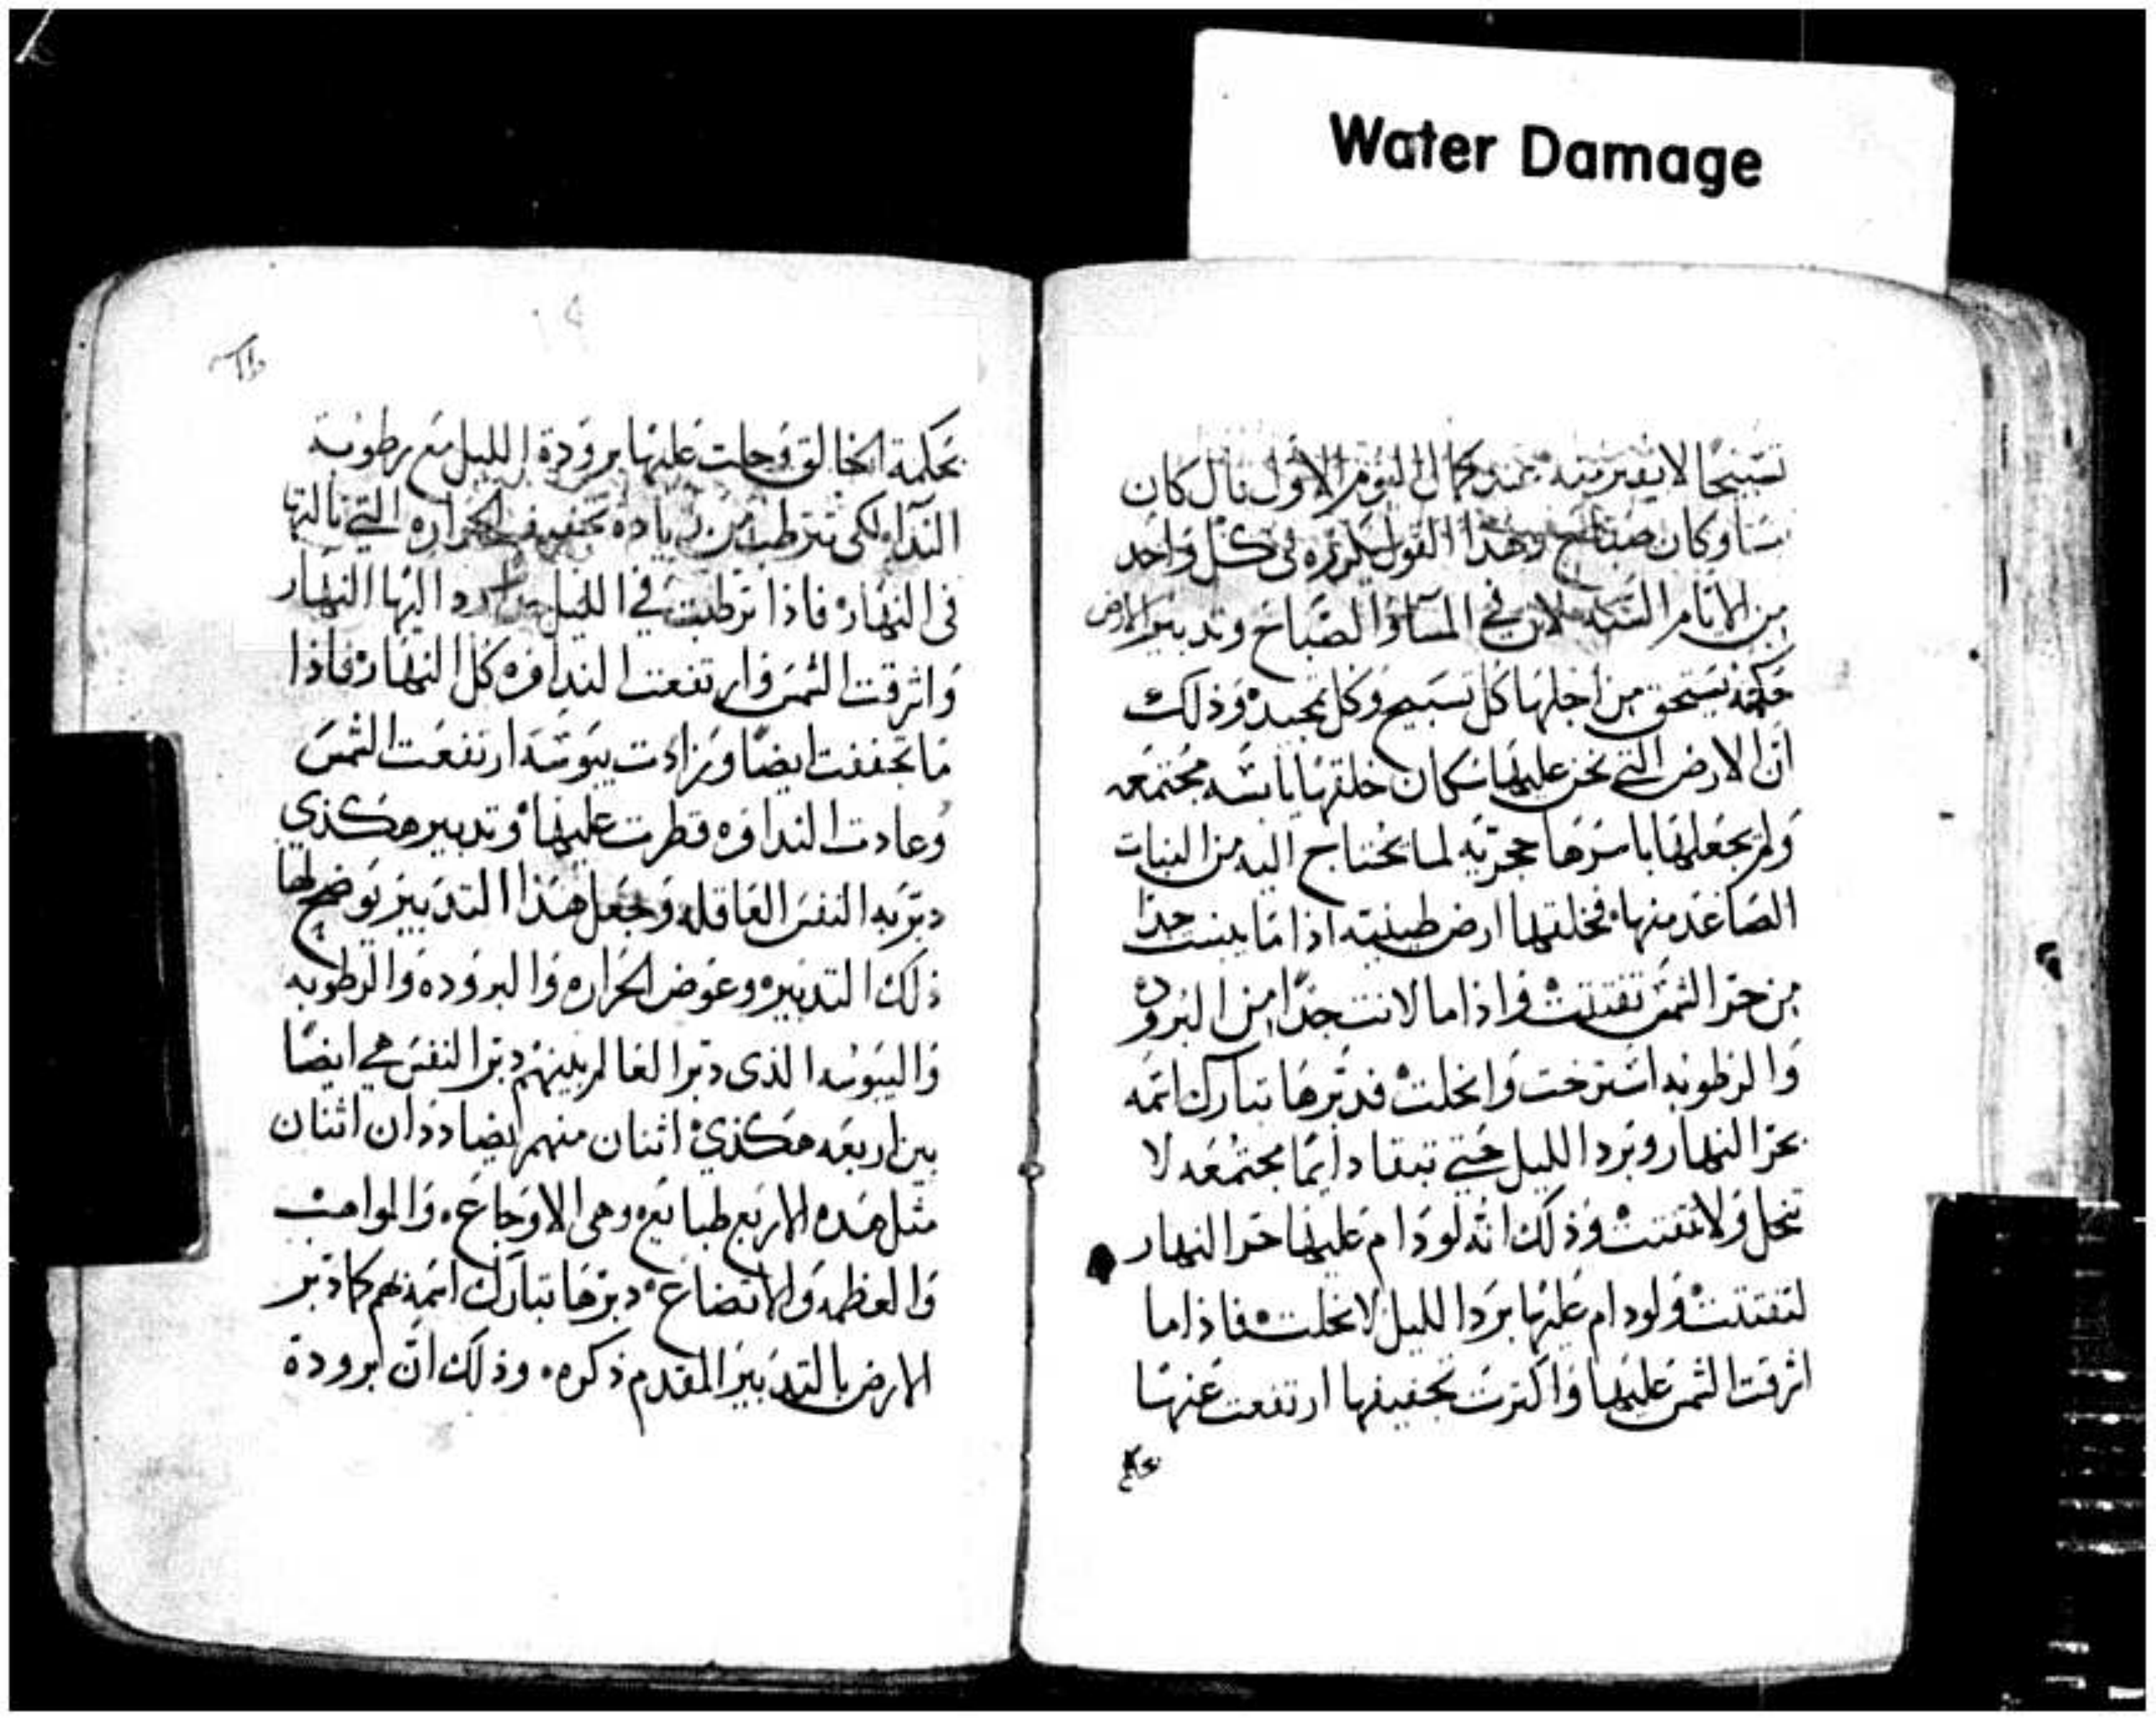 Water Damage
تسبيحًا لا يفتر منه عند كمال اليوم الاول قال كان
مسا وكان صباح وهذا القول يكرره في كل واحد
من الايام الستة لان في المسا والصباح وتدبير الارض
حكمة يستحق من اجلها كل تسبيح وكل تمجيد وذلك
ان الارض التي نحن عليها سكان خلقها يابسه مجتمعه
ولم يجعلها باسرها حجريّه لما يحتاج اليه من النبات
الصاعد منها فخلقها ارض طينيه اذا ما يبست جدا
من حرّ الشمس تفتتت واذا ما لانت جدًا من البروده
والرطوبه استرخت وانحلت فدبّرها تبارك اسمه
بحر النهار وبرد الليل حتي تبقا دايمًا مجتمعه لا
تنحل ولا تتفتت وذلك انه لو دام عليها حر النهار
لتفتتت ولو دام عليها برد الليل لانحلت فاذا ما
اشرقت الشمس عليها واكثرت تجفيفها ارتفعت عنها
بحكمة الخالق وحلت عليها برودة الليل مع رطوبة
النداء لكي تترطب من زيادة تجفيف الحراره التي نالتها
في النهار فاذا ترطبت في الليل رد اليها النهار
واشرقت الشمس وارتفعت النداوه كل النهار فاذا
ما تجففت ايضًا وزادت يبوسه ارتفعت الشمس
وعادت النداوه قطرت عليها وتدبير هكذي
دبّر به النفس العاقله وجعل هذا التدبير يوضح لها
ذلك التدبير وعوض الحراره والبروده والرطوبه
واليبوسه الذي دبّر العالم بينهم دبّر النفس هي ايضًا
بين اربعه هكذي اثنان منهم يضاددان اثنان
مثل هذه الاربع طبايع وهي الاوجاع والمواهب
والعظمه والاتضاع دبرها تبارك اسمه بهم كما دبر
الارض بالتدبير المقدم ذكره وذلك انّ برودة